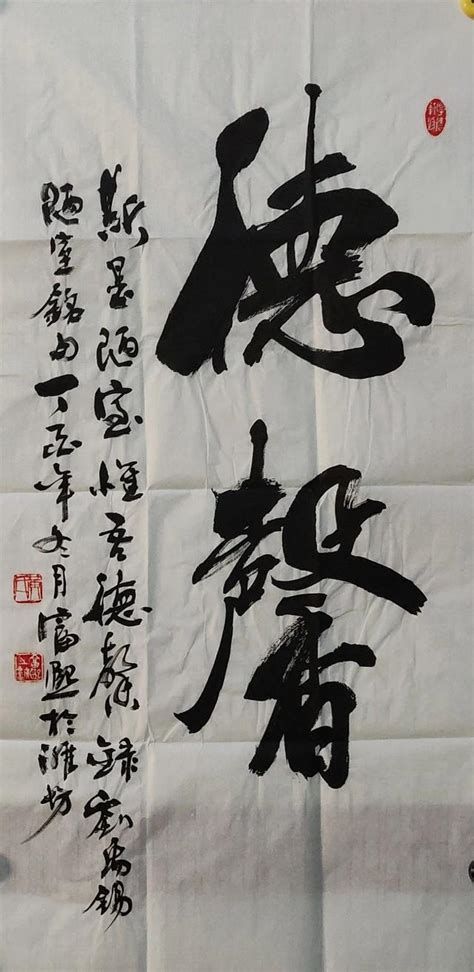 德馨
斯是陋室惟吾德馨録劉禹錫
陋室銘句丁酉年冬月富熙於濰坊